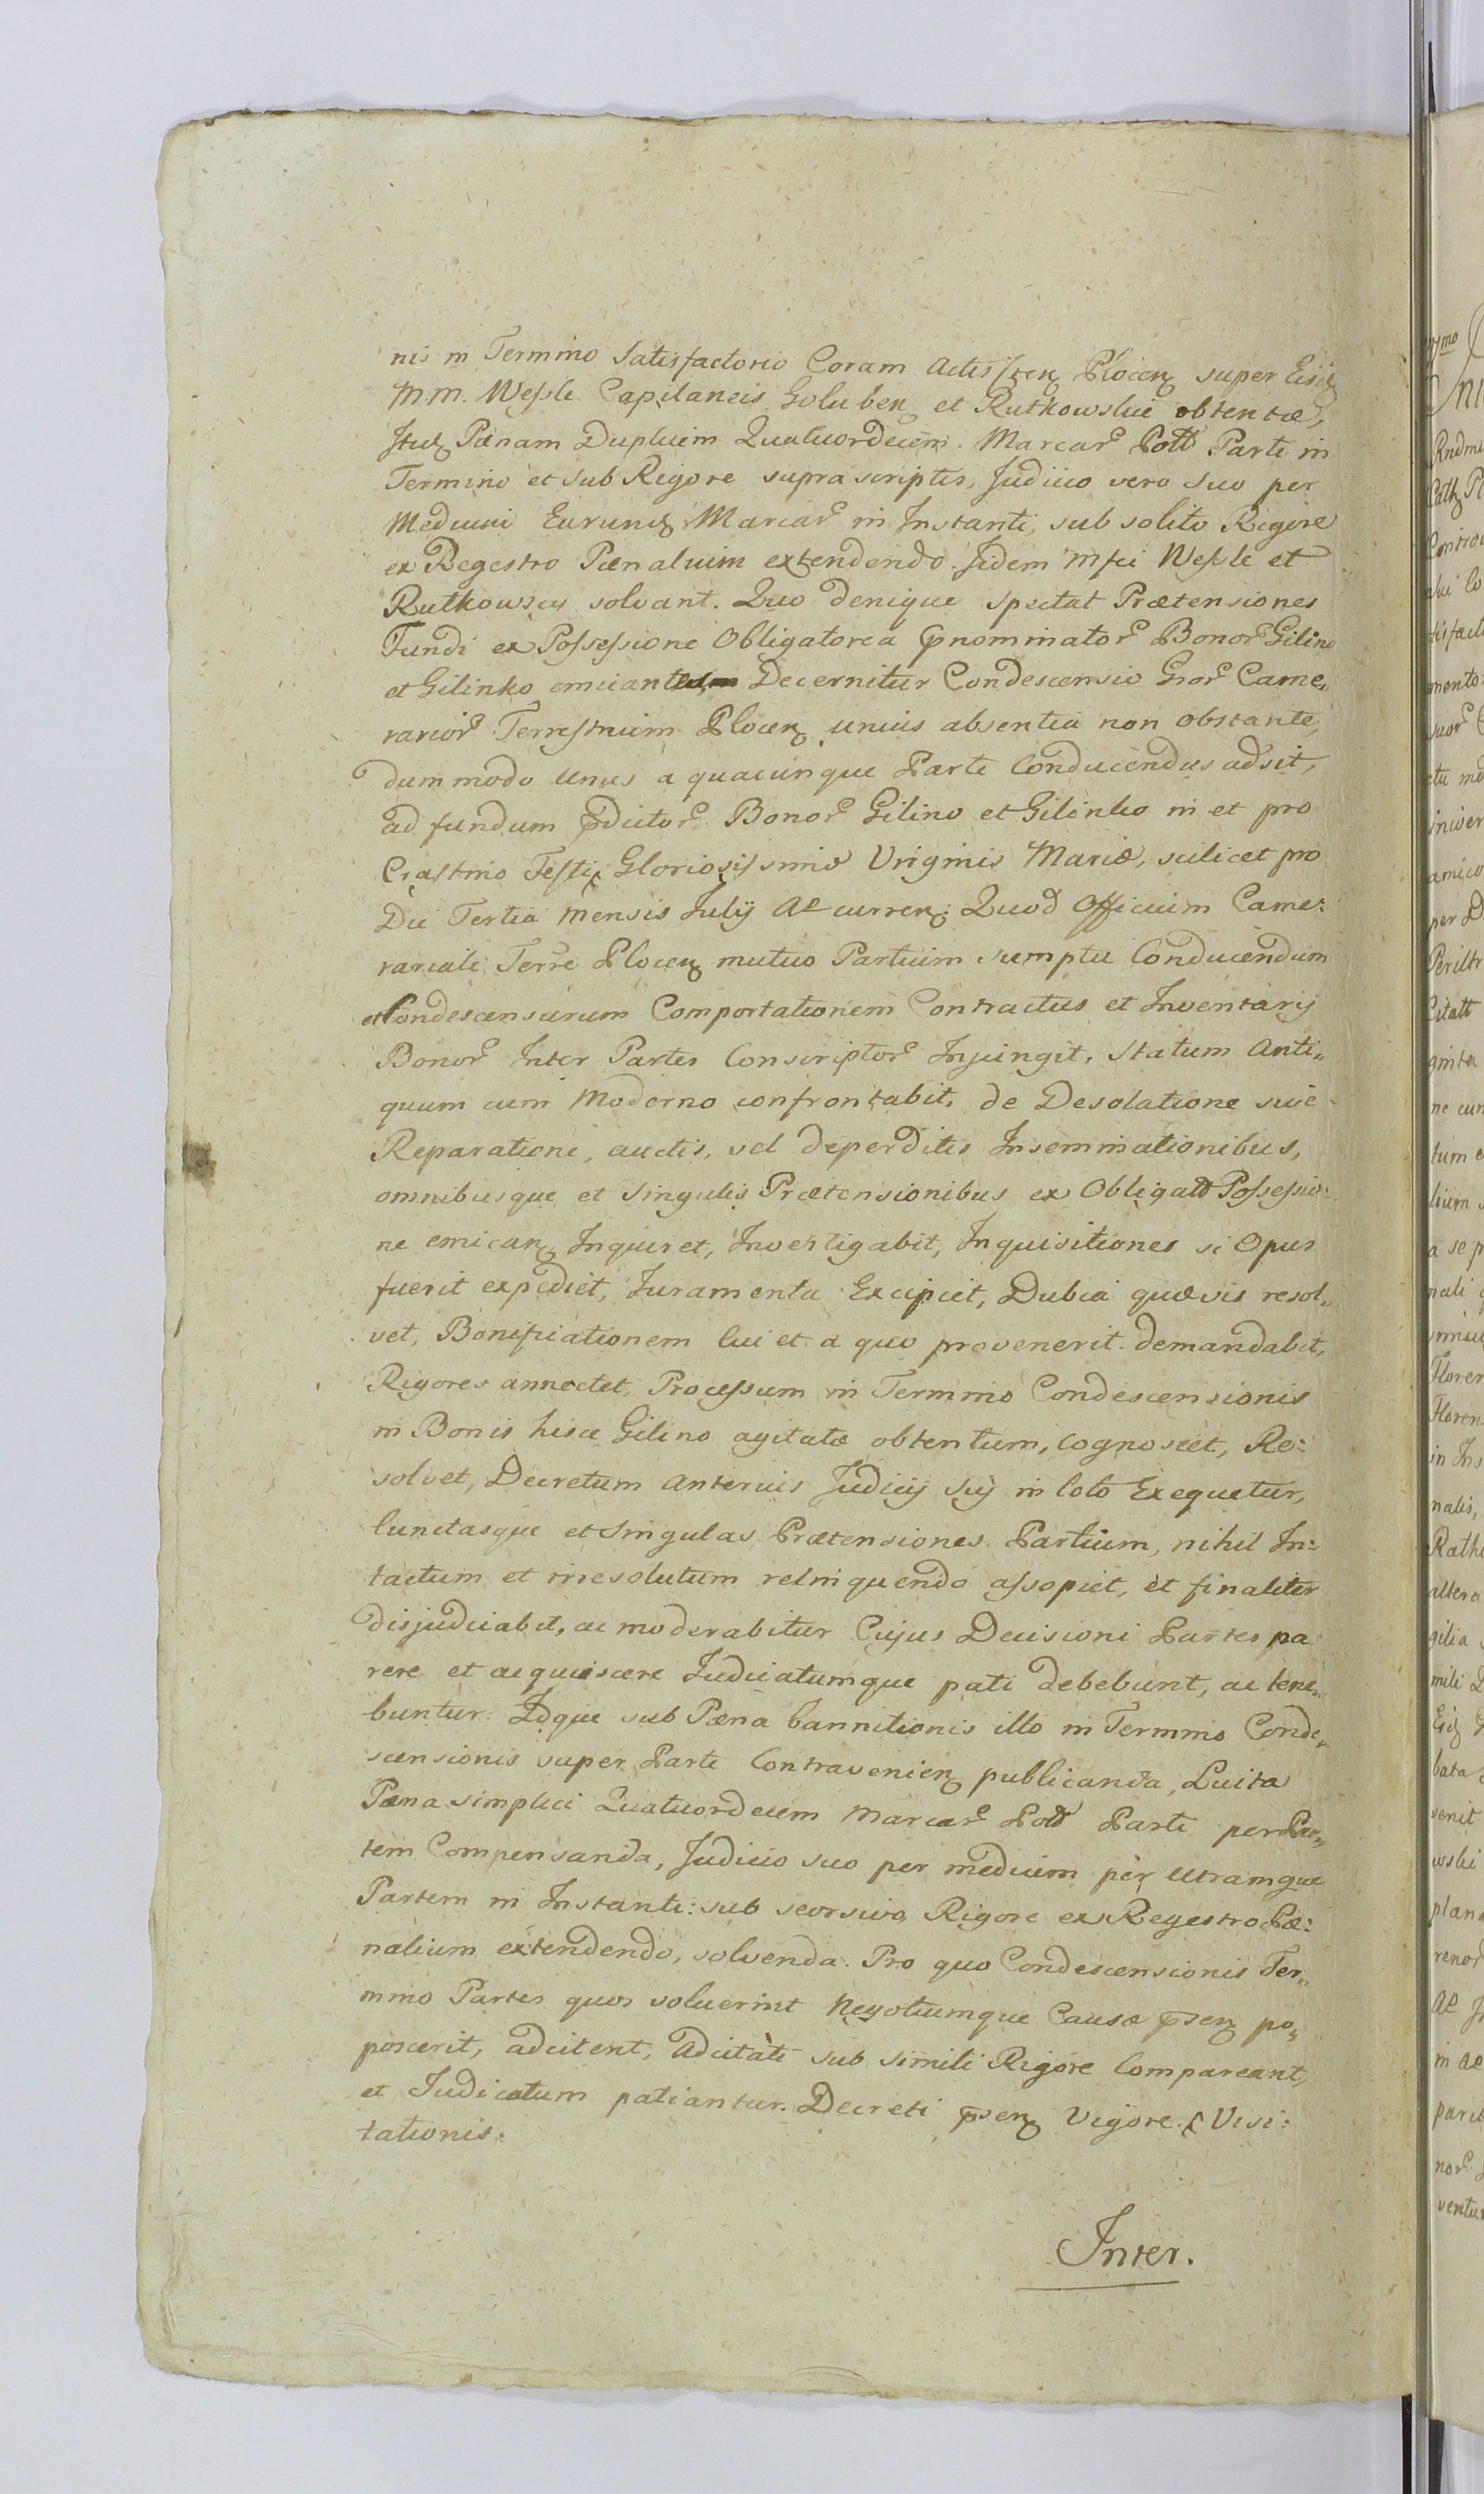 nis in Termino Satisfactorio Coram Actis Plocen super Eisd
M.M. Wessle Capitaneis Goluben et Rutkowskie obtentæ,
Itid Pænam Duplicem Quatuordecim Marcar Poll Parti in
Termino et sub Rigore supra scriptis, Judicio vero suo per
Medium Earund Marcar in Instanti, sub solito Rigore
ex Regestro Pænalium extendendo. Iidem Mfci Wessle et
Rutkowscy solvant. Quo denique spectat Prætensiones
Fundi ex Possessione Obligatorea pnominator Bonor Gilino
et Gilinko emicant Decernitur Condescensio Gnor Came„
rarior Terrestrium Plocen, unius absentia non obstante,
dum modo Unus a quacunque Parte Conducendus adsit,
ad fundum pdictor Bonor Gilino et Gilinko in et pro
Crastino Festi Gloriosissimæ Virginis Mariæ, scilicet pro
Die Tertia Mensis July Ao curren: Quod Officium Came:
rariale Terre Plocen mutuo Partium sumptu Conducendum
et Condescensurum Comportationem Contractus et Inventarij
Bonor Inter Partes Conscriptor Injungit, Statum Anti„
quum cum Moderno confrontabit, de Desolatione sive
Reparatione, auctis, vel deperditis Inseminationibus,
omnibusque et Singulis Prætensionibus ex Obligatt Possessio:
ne emican Inquiret, Investigabit, Inquisitiones si Opus
fuerit expediet, Juramenta Excipiet, Dubia quævis resol„
vet, Bonificationem Cui et a quo provenerit demandabit,
Rigores annectet, Processum in Termino Condescensionis
in Bonis hisce Gilino agitatæ obtentum, cognoscet, Re:
solvet, Decretum Anterius Judicij Sui in toto Exequetur,
Cunctasque et Singulas Prætensiones Partium, nihil In:
tactum et irresolutum relinquendo assopiet, et finaliter
disjudicabit, ac moderabitur Cujus Decisioni Partes pa
rere et acquiescere Judicatumque pati debebunt, ac tene„
buntur. Idque sub Pæna bannitionis illo in Termino Conde„
scensionis super Parte Contravenien publicanda, Luita
Pæna simplici Quatuordecem Marcar Poll Parti per Par„
tem Compensanda, Judicio suo per medium per Utramque
Partem in Instanti: sub seorsivo Rigore ex Regestro Pæ:
nalium extendendo, solvenda. Pro quo Condescensionis Ter„
mino Partes quos voluerint Negotiumque Causæ psen po„
poscerit, adcitent, Adcitati sub simili Rigore Compareant,
et Judicatum patiantur. Decreti psen Vigore. Visi:
tationis.
Inter.